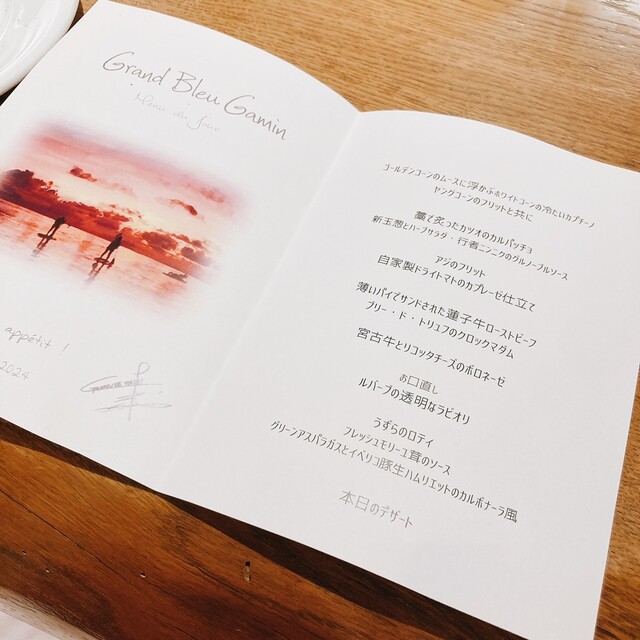 Grand Bleu Gamin
Menu du Jour
appétit !
2024
ゴールデンコーンのムースに浮かぶホワイトコーンの冷たいカプチーノ
ヤングコーンのフリットと共に
藁で炙ったカツオのカルパッチョ
新玉葱とハーブサラダ・行者ニンニクのグルノーブルソース
アジのフリット
自家製ドライトマトのカプレーゼ仕立て
薄いパイでサンドされた蓮子牛ローストビーフ
ブリー・ド・トリュフのクロックマダム
宮古牛とリコッタチーズのボロネーゼ
お口直し
ルバーブの透明なラビオリ
うずらのロティ
フレッシュモリーユ茸のソース
グリーンアスパラガスとイベリコ豚生ハムリエットのカルボナーラ風
本日のデザート